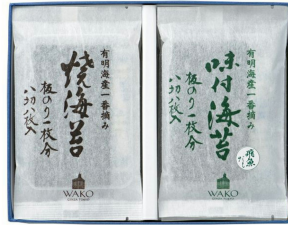 有明海産一番摘み
味付海苔
板のり一枚分
八切八枚入
飛魚
だし
WAKO
有明海産一番摘み
焼海苔
板のり一枚分
八切八枚入
WAKO